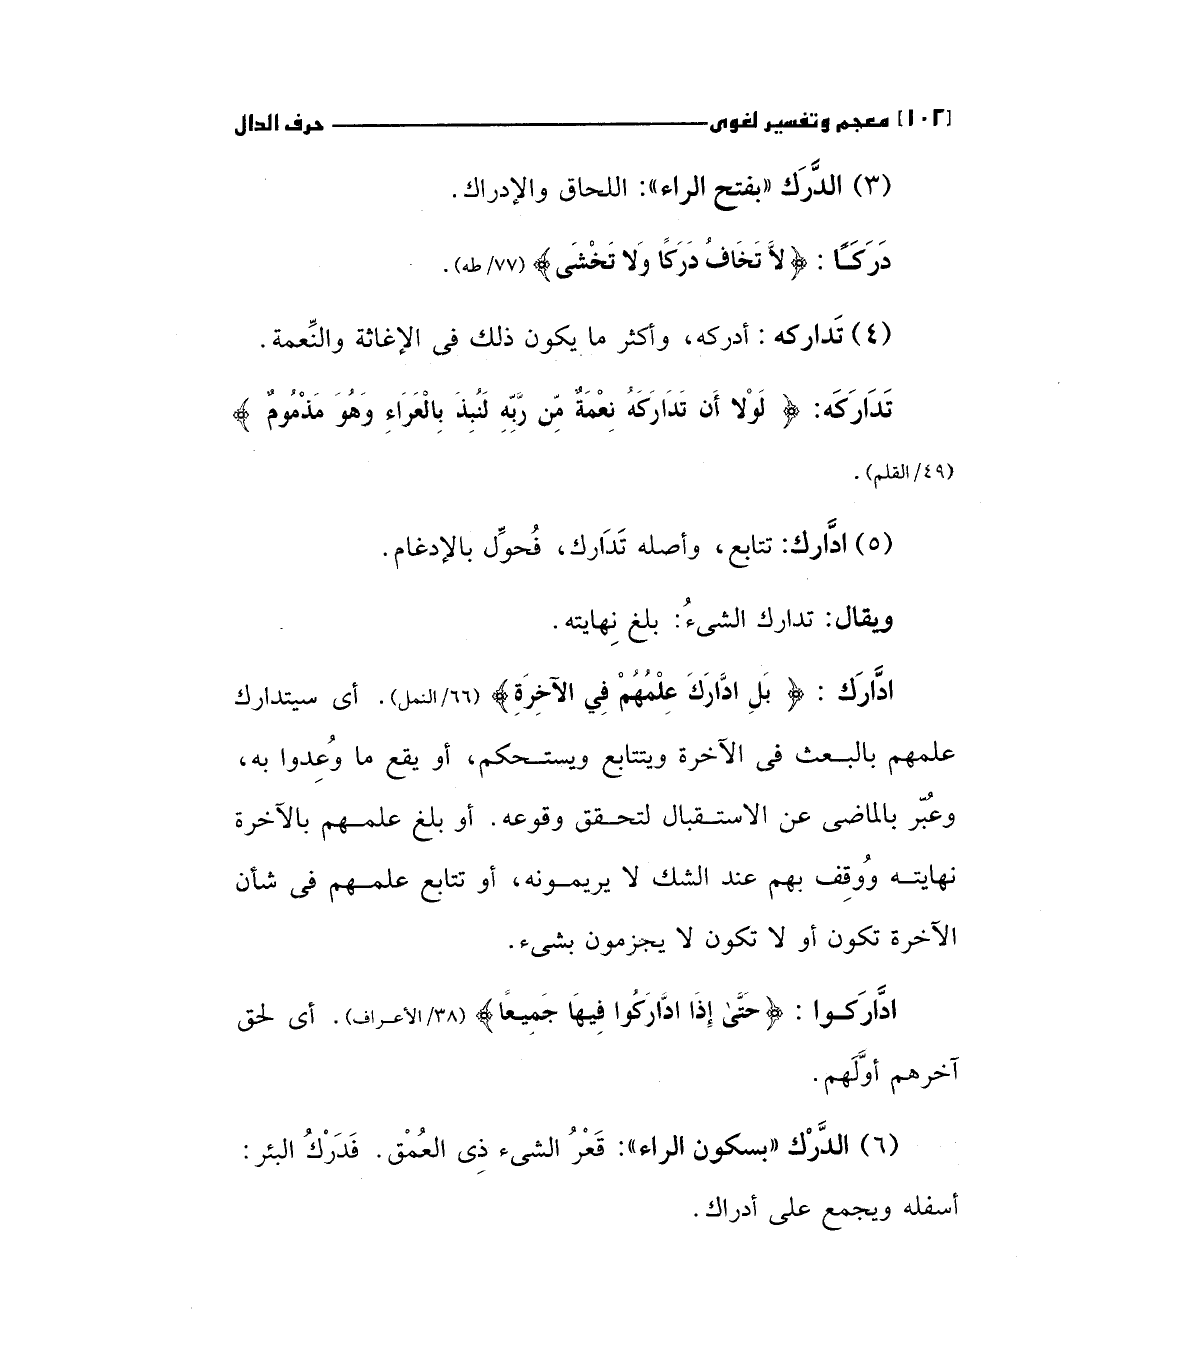 [١٠٢] معجم وتفسير لغوى ــــــــــ حرف الدال
(٣) الدَّرَك «بفتح الراء»: اللحاق والإدراك.
دَرَكًا : ﴿لاَّ تَخَافُ دَرَكًا وَلا تَخْشَى﴾ (٧٧/ طه).
(٤) تَداركه : أدركه، وأكثر ما يكون ذلك فى الإغاثة والنِّعمة.
تَدَارَكَه: ﴿ لَوْلا أَن تَدَارَكَهُ نِعْمَةٌ مِّن رَّبِّهِ لَنُبِذَ بِالْعَرَاءِ وَهُوَ مَذْمُومٌ ﴾
(٤٩/ القلم).
(٥) ادَّارك: تتابع، وأصله تَدَارك، فُحوِّل بالإدغام.
ويقال: تدارك الشىءُ: بلغ نِهايته.
ادَّارَك : ﴿ بَلِ ادَّارَكَ عِلْمُهُمْ فِي الآخِرَةِ﴾ (٦٦/ النمل). أى سيتدارك
علمهم بالبعث فى الآخرة ويتتابع ويستحكم، أو يقع ما وُعِدوا به،
وعُبّر بالماضى عن الاستقبال لتحقق وقوعه. أو بلغ علمهم بالآخرة
نهايته ووُقِف بهم عند الشك لا يريمونه، أو تتابع علمهم فى شأن
الآخرة تكون أو لا تكون لا يجزمون بشىء.
ادَّارَكوا : ﴿حَتَّىٰ إِذَا ادَّارَكُوا فِيهَا جَمِيعًا﴾ (٣٨/ الأعراف). أى لحق
آخرهم أوَّلَهم.
(٦) الدَّرْك «بسكون الراء»: قَعْرُ الشىء ذِى العُمْق. فَدَرْكُ البئر :
أسفله ويجمع على أدراك.